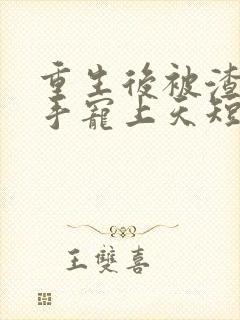 重生後被渣
手寵上天短
王雙喜